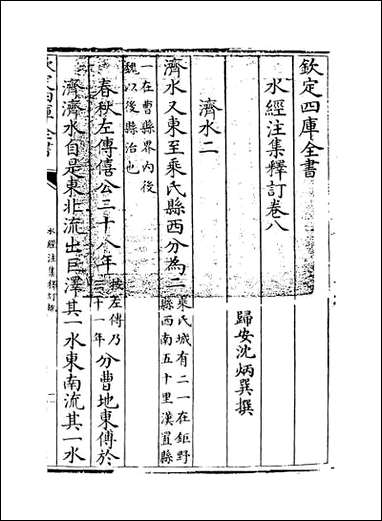 欽定四庫全書
水經注集釋訂訛卷八
歸安沈炳巽撰
濟水二
濟水又東至乘氏縣西分為二
乘氏城有二一在鉅野
縣西南五十里漢置縣
一在曹縣界內後
魏以後縣治也
春秋左傳僖公三十八年
按左傳乃
三十一年
分曹地東傅於
濟濟水自是東北流出巨澤其一水東南流其一水
欽定四庫全書
水經注集釋訂訛